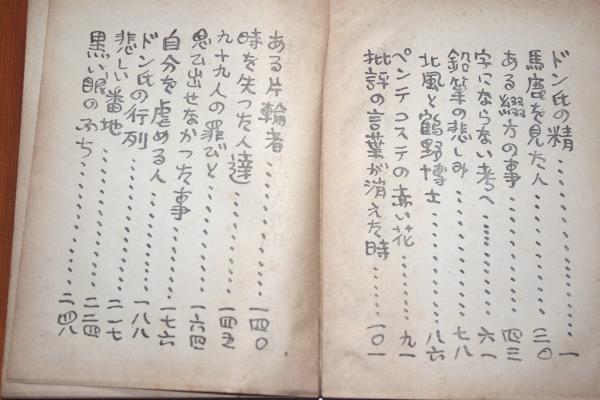 ドン氏の精……………一
馬鹿を見た人……………三〇
ある綴方の事……………四三
字にならない考へ……………六一
鉛筆の悲しみ……………七八
北風と鶴野博士……………八六
ペンテコステの赤い花……………九一
批評の言葉が消えた時……………一〇一
ある片輪者……………一四〇
時を失つた人達……………一四五
九十九人の罪びと……………一六四
思ひ出せなかつた事……………一七六
自分を虐める人……………一八八
ドン氏の行列……………二一七
悲しい番地……………二二四
黒い眼のふち……………二四八